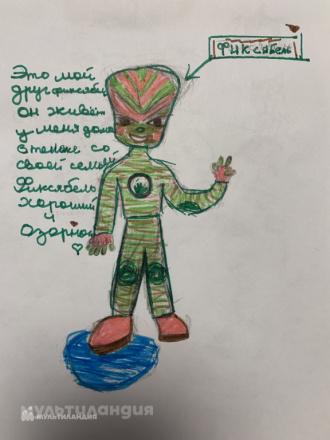 Фиксябель
Это мой
друг фиксябель
он живёт
у меня дома
в пенале со
своей семьёй
Фиксябель
хороший
и
озорной
мультиландия
МУЛЬТИЛАНДИЯ